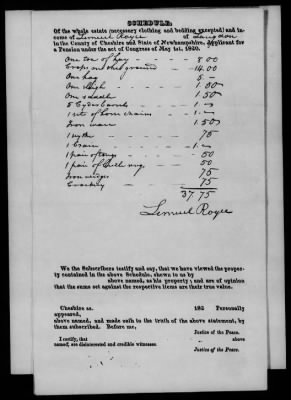 SCHEDULE:
Of the whole estate (necessary clothing and bedding excepted) and in-
come of Lemuel Royce of Langdon
in the County of Cheshire and State of Newhampshire, applicant for
a Pension under the act of Congress of May 1st, 1820.
One ton of hay — 8 00
Crops on the ground — 14.00
One hog — 5 —
One sleigh — 1.00
One saddle — 1.50
5 Cyder barrels — 1.—
1 sett of horse chains — 1.—
Iron ware — 1.50
1 sythe — 75
1 — 1.—
1 pair of tongs — 50
1 pair of — 50
Iron wedges — 75
Crockery — 75
37.75
Lemuel Royce
We the Subscribers testify and say, that we have viewed the proper-
ty contained in the above Schedule, shewn to us by
above named, as his property; and are of opinion
that the same set against the respective items are their true value.
Cheshire ss. 182 Personally
appeared,
above named, and made oath to the truth of the above statement, by
them subscribed. Before me,
Justice of the Peace.
I certify, that above
named, are disinterested and credible witnesses.
Justice of the Peace.